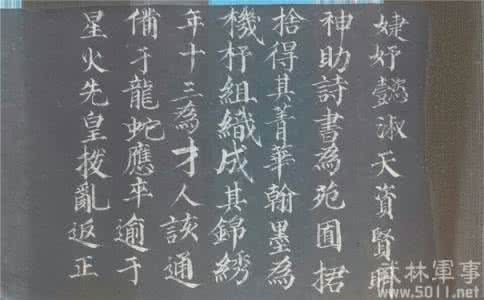 婕妤懿淑天資賢眀
神助詩書為苑囿捃
捨得其菁華翰墨為
機杼組織成其錦綉
年十三為才人該通
備于龍蛇應卒逾于
星火先皇撥亂返正
武林軍事
www.5011.net